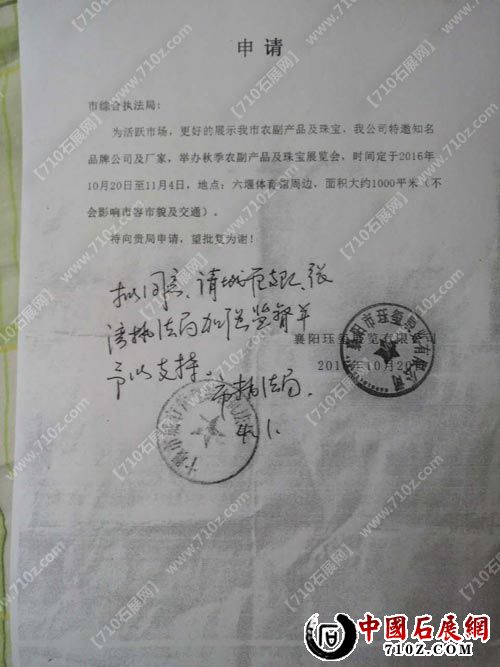 申请
市综合执法局：
为活跃市场，更好的展示我市农副产品及珠宝，我公司特邀知名
品牌公司及厂家，举办秋季农副产品及珠宝展览会，时间定于2016年
10月20日至11月4日，地点：六堰体育馆周边，面积大约1000平米（不
会影响市容市貌及交通）。
特向贵局申请，望批复为谢！
拟同意、请城
湾执法局加强监督并
予以支持。
市执法局.
襄阳珏玺展览有限公司
10月20日
【710石展网】
www.710z.com
中國石展網
710Z.COM